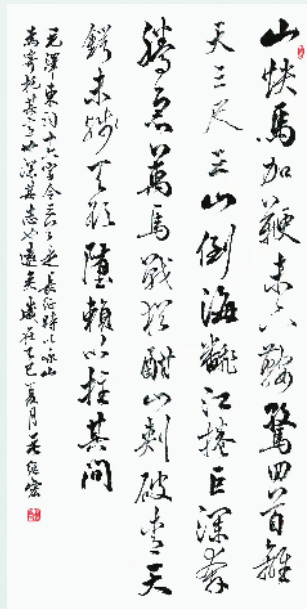 山快馬加鞭未下鞍驚回首離
天三尺三山倒海翻江捲巨瀾奔
騰急萬馬戰猶酣山刺破青天
鍔未殘天欲墮賴以柱其間
毛澤東詞十六字令三首是長征時以詠山
為寄托其意也深其志也遠矣歲在乙巳夏月